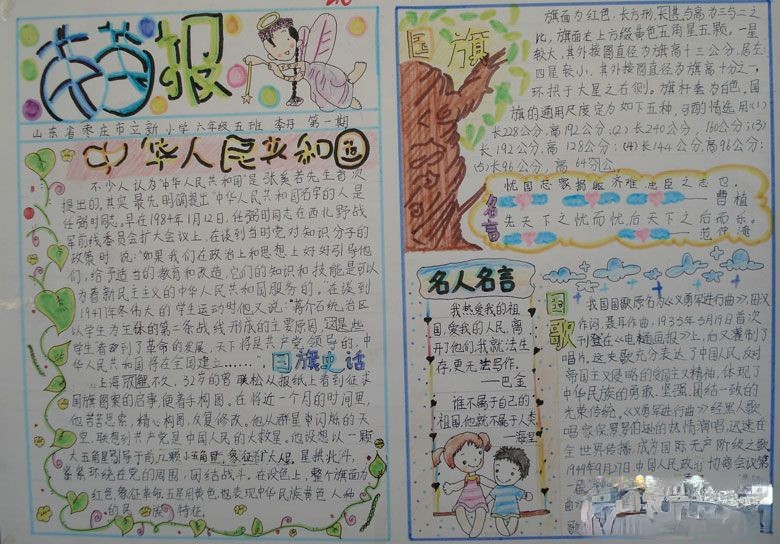 报
山东省枣庄市立新小学六年级五班 李月 第一期
中华人民共和国
不少人认为"中华人民共和国"是张奚若先生首次
提出的,其实最先明确提"中华人民共和国"名字的人是
任弼时同志。早在1984年1月12日,任弼时同志在西北野战
军前线委员会扩大会议上,在谈到当时党对知识分子的
政策时说:"如果我们在政治上和思想上好好引导他
们,给予适当的教育和改造,它们的知识和技能是可以
为着新民主主义的中华人民共和国服务的。在谈到
1947年冬伟大的学生运动时他又说:"蒋介石统治区
以学生为主体的第二条战线形成的主要原因,这是些
学生看到了革命的发展,天下将是共产党领导的,中
华人民共和国将在全国建立……
国旗史话
上海 不久,32岁的曾联松从报纸上看到征求
国旗图案的启事,便着手构图。在将近一个月的时间里,
他苦苦思索,精心构图,反复修改。他从群星中闪烁的天
空,联想到共产党是中国人民的大救星。他设想以一颗
大五角星引导于前,几颗小五角星,象征广大人民,星拱北斗,
紧紧环绕在党的周围,团结战斗。在设色上,整个旗面为
红色,象征革命,五星用黄色,也表现中华民族黄色人种
的民族特征。
国旗
旗面为红色,长方形,其长与高为三与二之
比,旗面左上方缀黄色五角星五颗。一星
较大,其外接圆直径为旗高十三公分,居左;
四星较小,其外接圆直径为旗高十分之一,
环拱于大星之右侧。旗杆套为白色,国
旗的通用尺度定为如下五种,可酌情选用:(1)
长228公分,高192公分;(2)长240公分, 160公分;(3)
长192公分,高128公分;(4)长144公分,高96公分;
(5)长96公分,高64公分。
名言
忧国忘家,捐躯济难,忠臣之志也。
——曹植
先天下之忧而忧,后天下之后而乐。
——范仲淹
名人名言
我热爱我的祖
国,爱我的人民,离
开了他们,我就法生
存,更无法写作。
——巴金
谁不属于自己的
祖国,他就不属于人类
——海涅
国歌
我国国歌原名为《义勇军进行曲》,田汉
作词,聂耳作曲,1935年5月19日首次
刊登在《电通画报》上,后又灌制了
唱片,这支歌充分表达了中国人民反对
帝国主义侵略的爱国主义精神,体现了
中华民族的勇敢、坚强、团结一致的
光荣传统,《义勇军进行曲》经黑人歌
唱家保罗罗伯逊的热情演唱,迅速在
全世界传播,成为国际无产阶级之歌
1949年9月27日,中国人民政治协商会议第
一届